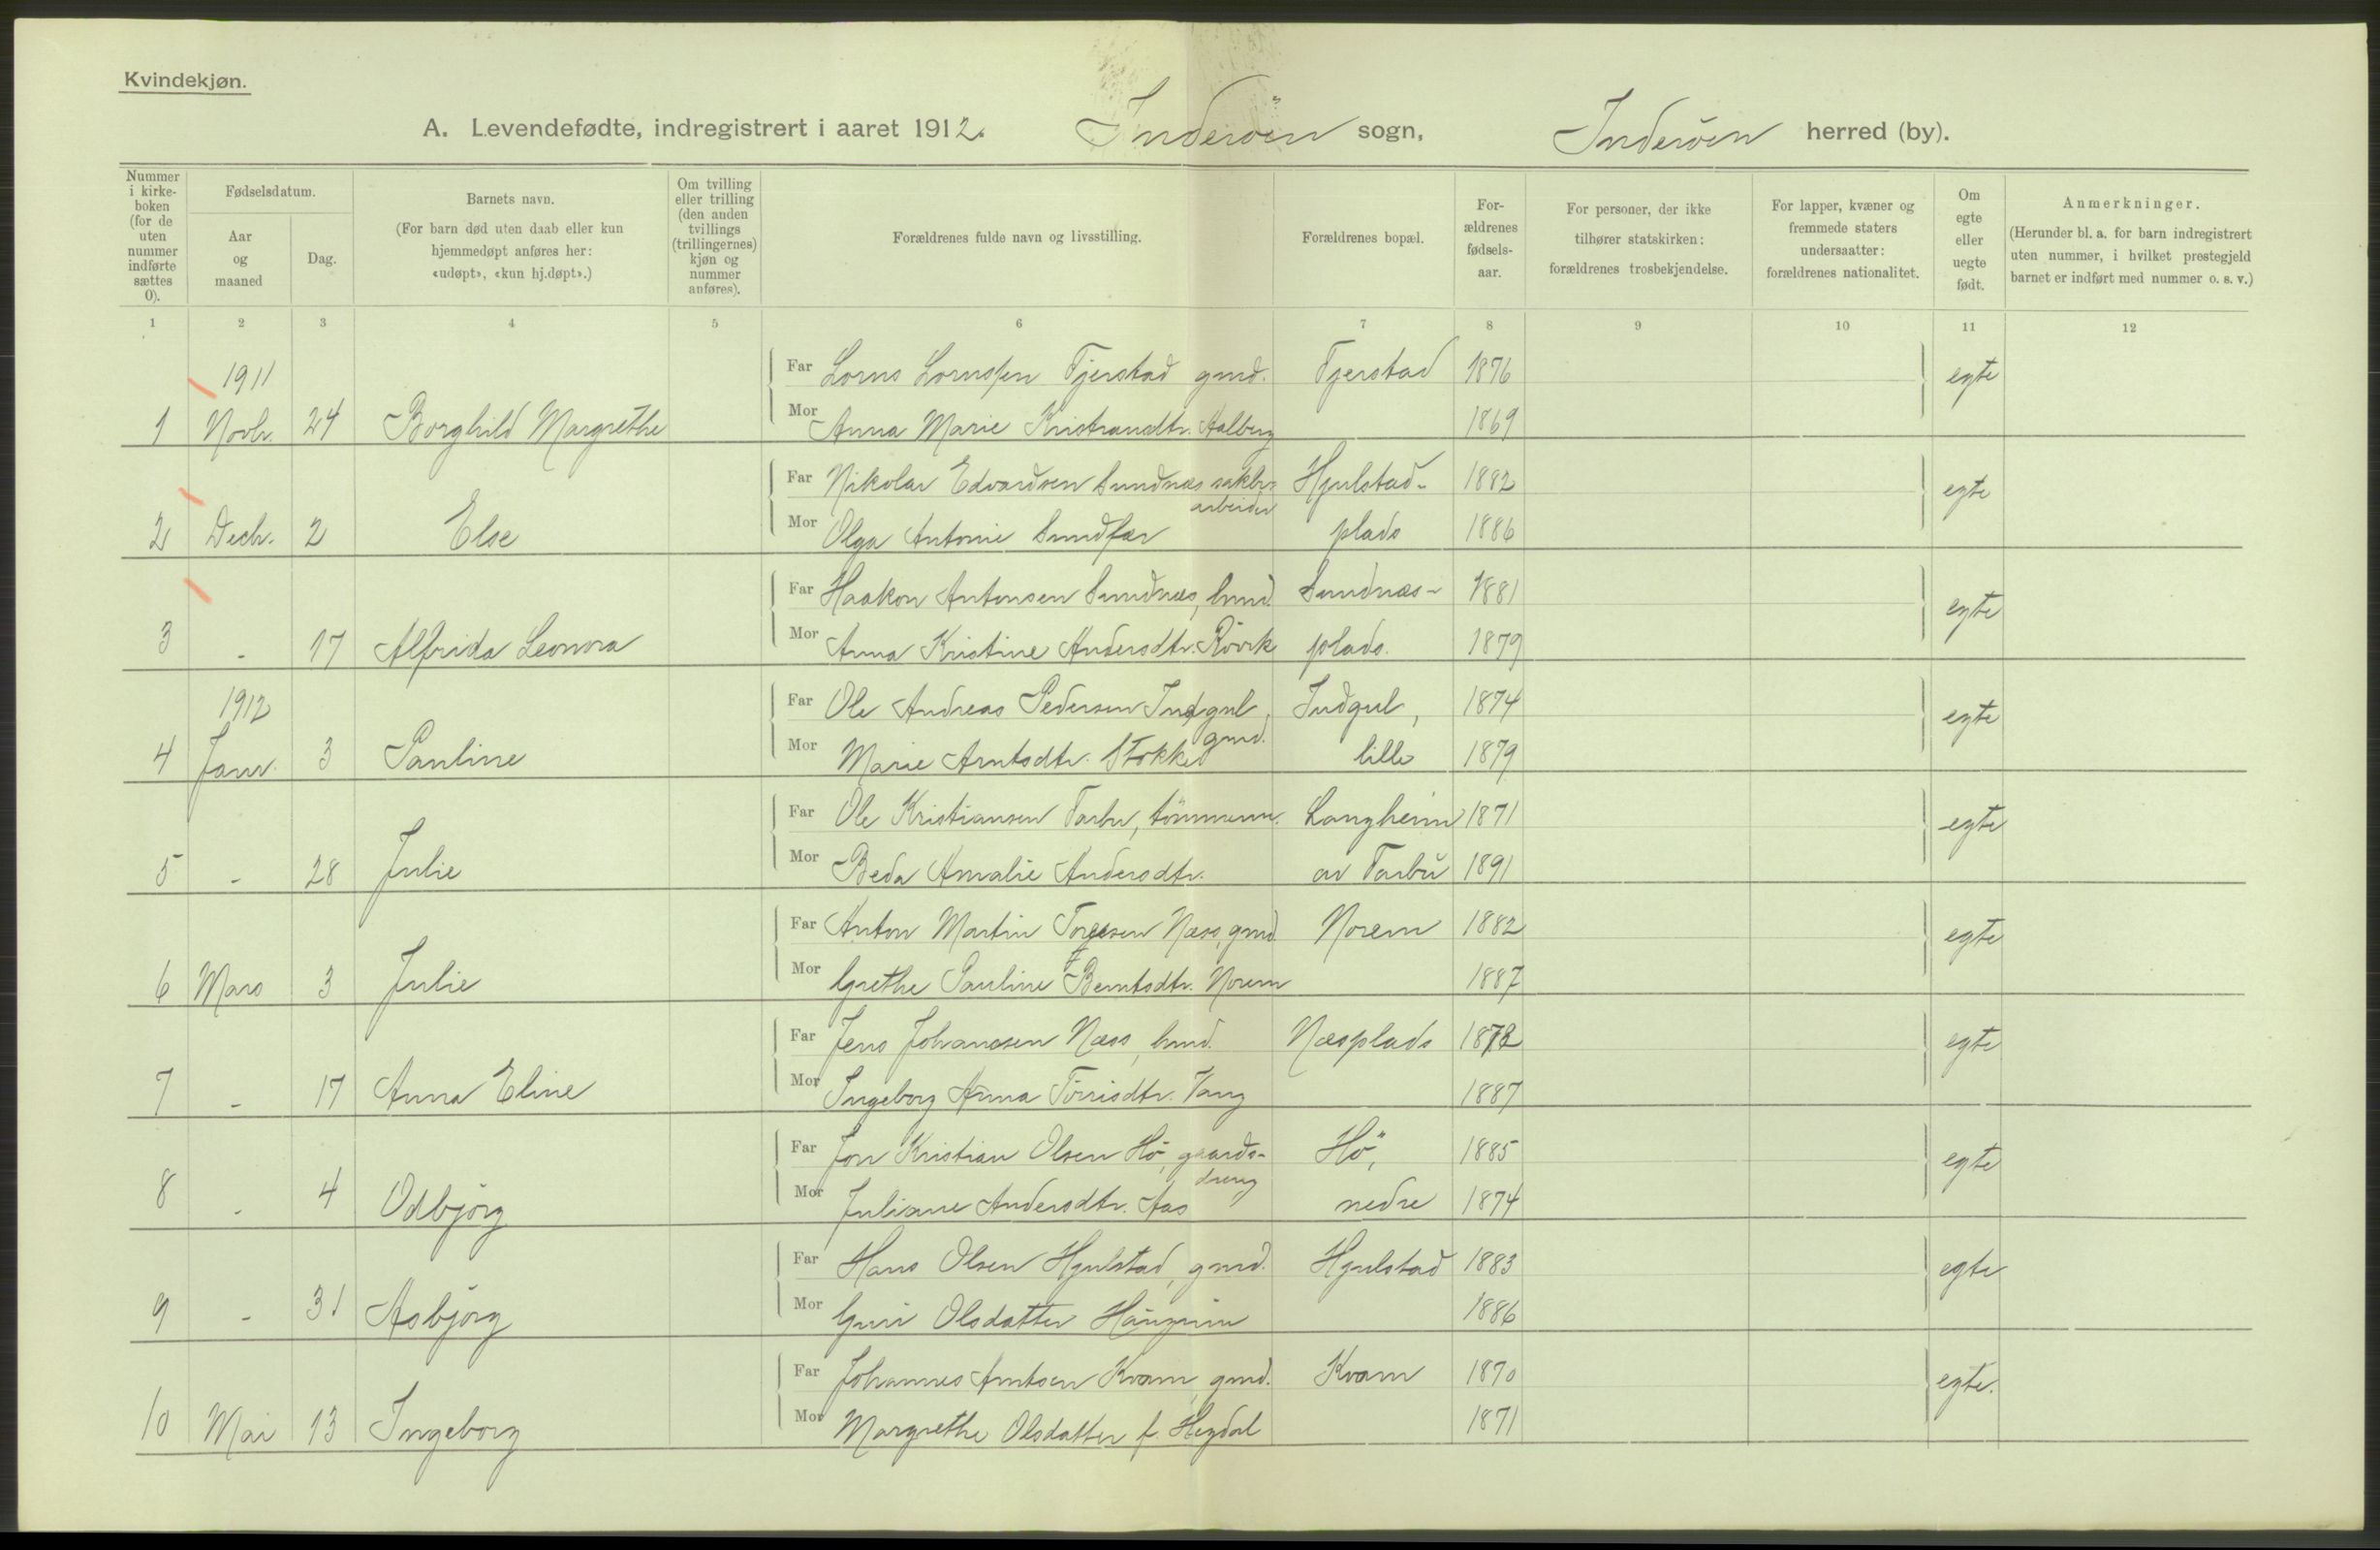 Kvindekjøn.
A. Levendefødte, indregistrert i aaret 1912. Inderöen sogn, Inderöen herred (by).
Nummer i kirke-boken (for de uten nummer indførte sættes 0).
Fødselsdatum.
Aar og maaned
Dag.
Barnets navn.
(For barn død uten daab eller kun hjemmedøpt anføres her: «udøpt», «kun hj.døpt».)
Om tvilling eller trilling (den anden tvillings (trillingernes) kjøn og nummer anføres).
Forældrenes fulde navn og livsstilling.
Forældrenes bopæl.
For-ældrenes fødsels-aar.
For personer, der ikke tilhører statskirken: forældrenes trosbekjendelse.
For lapper, kvæner og fremmede staters undersaatter: forældrenes nationalitet.
Om egte eller uegte født.
Anmerkninger.
(Herunder bl. a. for barn indregistrert uten nummer, i hvilket prestegjeld barnet er indført med nummer o. s. v.)
1 2 3 4 5 6 7 8 9 10 11 12
1911 Far Lorns Lornssen Tjerstad gmd. Tjerstad 1876 egte
1 Novbr. 24 Borghild Margrethe Mor Anna Marie Kristiansdtr. Aalberg 1869
Far Nikolai Edvardsen Sundnæs Hjulstad- 1882 egte
arbeider
2 Decbr. 2 Else Mor Olga Antonie Sundfær plads 1886
Far Haakon Antonsen Sundnæs, hmd. Sundnæs- 1881 egte
3 - 17 Alfrida Leonora Mor Anna Kristine Andersdtr. plads. 1879
1912 Far Ole Andreas Pedersen Indgul, Indgul, 1874 egte
gmd.
4 Janr. 3 Pauline Mor Marie Arntsdtr. Stokke lille 1879
Far Ole Kristiansen Tarbu, tömmerm. Langheim 1871 egte
5 - 28 Julie Mor Beda Amalie Andersdtr. av Tarbu 1891
Far Anton Martin Torgesen Næss, gmd. Norem 1882 egte
6 Mars 3 Julie Mor Grethe Pauline Berntsdtr. Norem 1887
Far Jens Johanssen Næss, hmd. Næsplads 1872 egte
7 - 17 Anna Eline Mor Ingeborg Anna Törrisdtr. Vang 1887
Far Jon Kristian Olsen Hö, gaards- Hö, 1885 egte
dreng
8 - 4 Odbjörg Mor Juliane Andersdtr. Aas nedre 1874
Far Hans Olsen Hjulstad, gmd. Hjulstad 1883 egte
9 - 31 Asbjörg Mor Guri Olsdatter 1886
Far Johannes Arntsen Kvam, gmd. Kvam 1870 egte.
10 Mai 13 Ingeborg Mor Margrethe Olsdatter f. Hegdal 1871